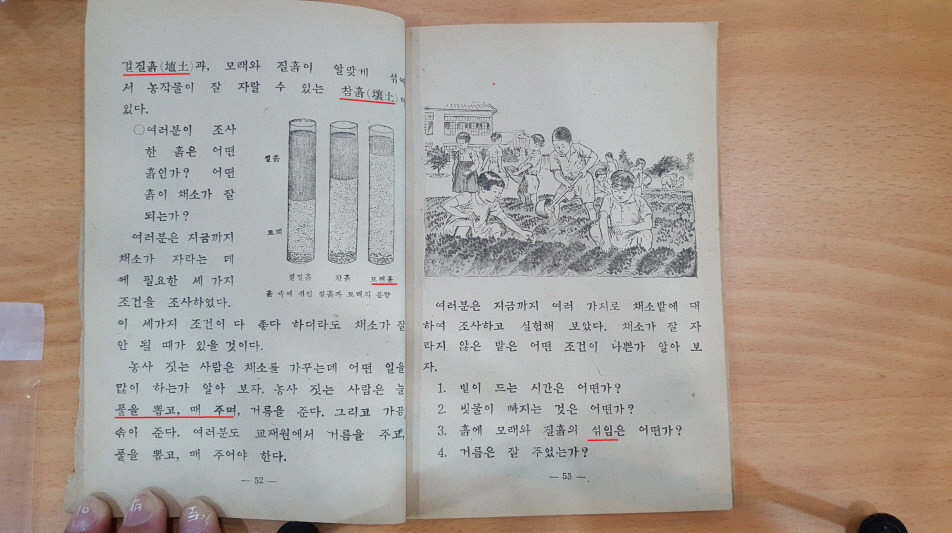 걸질흙(埴土)과, 모래와 질흙이 알맞게 섞여
서 농작물이 잘 자랄 수 있는 참흙(壤土)이
있다.
○여러분이 조사
한 흙은 어떤
흙인가? 어떤
흙이 채소가 잘
되는가?
여러분은 지금까지
채소가 자라는 데
에 필요한 세 가지
조건을 조사하였다.
질흙
모래
질흙 참흙 모래흙
흙 속에 섞인 질흙과 모래의 분량
이 세가지 조건이 다 좋다 하더라도 채소가 잘
안 될 때가 있을 것이다.
농사 짓는 사람은 채소를 가꾸는데 어떤 일을
많이 하는가 알아 보자. 농사 짓는 사람은 늘
풀을 뽑고, 매 주며, 거름을 준다. 그리고 가끔
솎아 준다. 여러분도 교재원에서 거름을 주고,
풀을 뽑고, 매 주어야 한다.
— 52 —
여러분은 지금까지 여러 가지로 채소밭에 대
하여 조사하고 실험해 보았다. 채소가 잘 자
라지 않은 밭은 어떤 조건이 나쁜가 알아 보
자.
1. 볕이 드는 시간은 어떤가?
2. 빗물이 빠지는 것은 어떤가?
3. 흙에 모래와 질흙의 섞임은 어떤가?
4. 거름은 잘 주었는가?
— 53 —